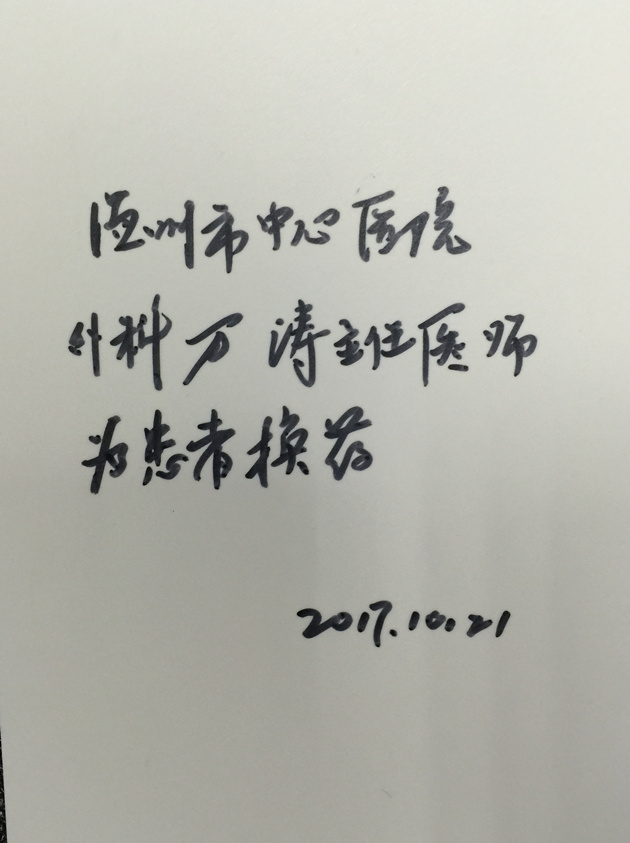 温州市中心医院
外科万涛主任医师
为患者换药
2017.10.21